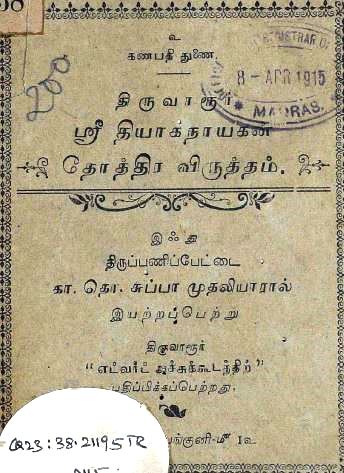 உ
கணபதி துணை.
திருவாரூர்
ஸ்ரீ தியாகநாயகன்
தோத்திர விருத்தம்.
இஃது
திருப்பணிப்பேட்டை
கா. தொ. சுப்பா முதலியாரால்
இயற்றப்பெற்று
திருவாரூர்
"எட்வர்ட் அச்சுக்கூடத்திற்"
பதிப்பிக்கப்பெற்றது.
ங்குனி-மீ 1௳
200
8 - APR 1915
MADRAS.
Q23:38.21195TR